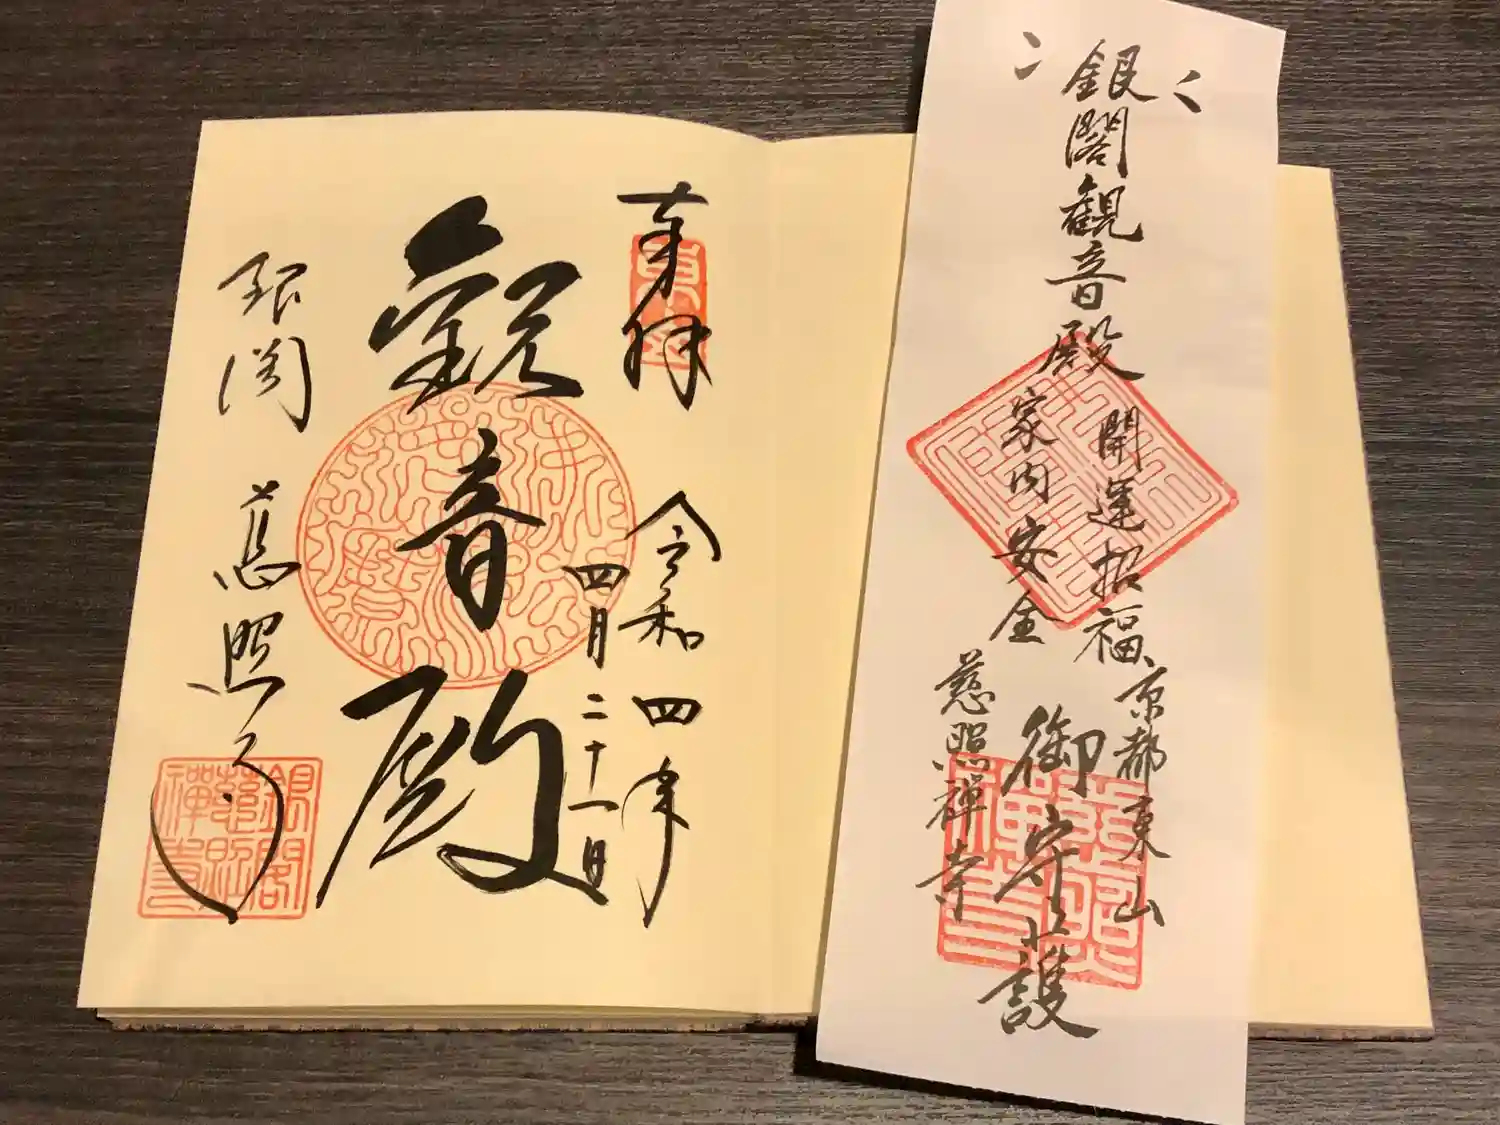 奉拝
令和四年
四月二十一日
観音殿
銀閣 慈照寺
銀閣慈照禅寺
銀閣観音殿
開運招福
家内安全
京都東山
御守護
慈照禅寺
慈照禅寺